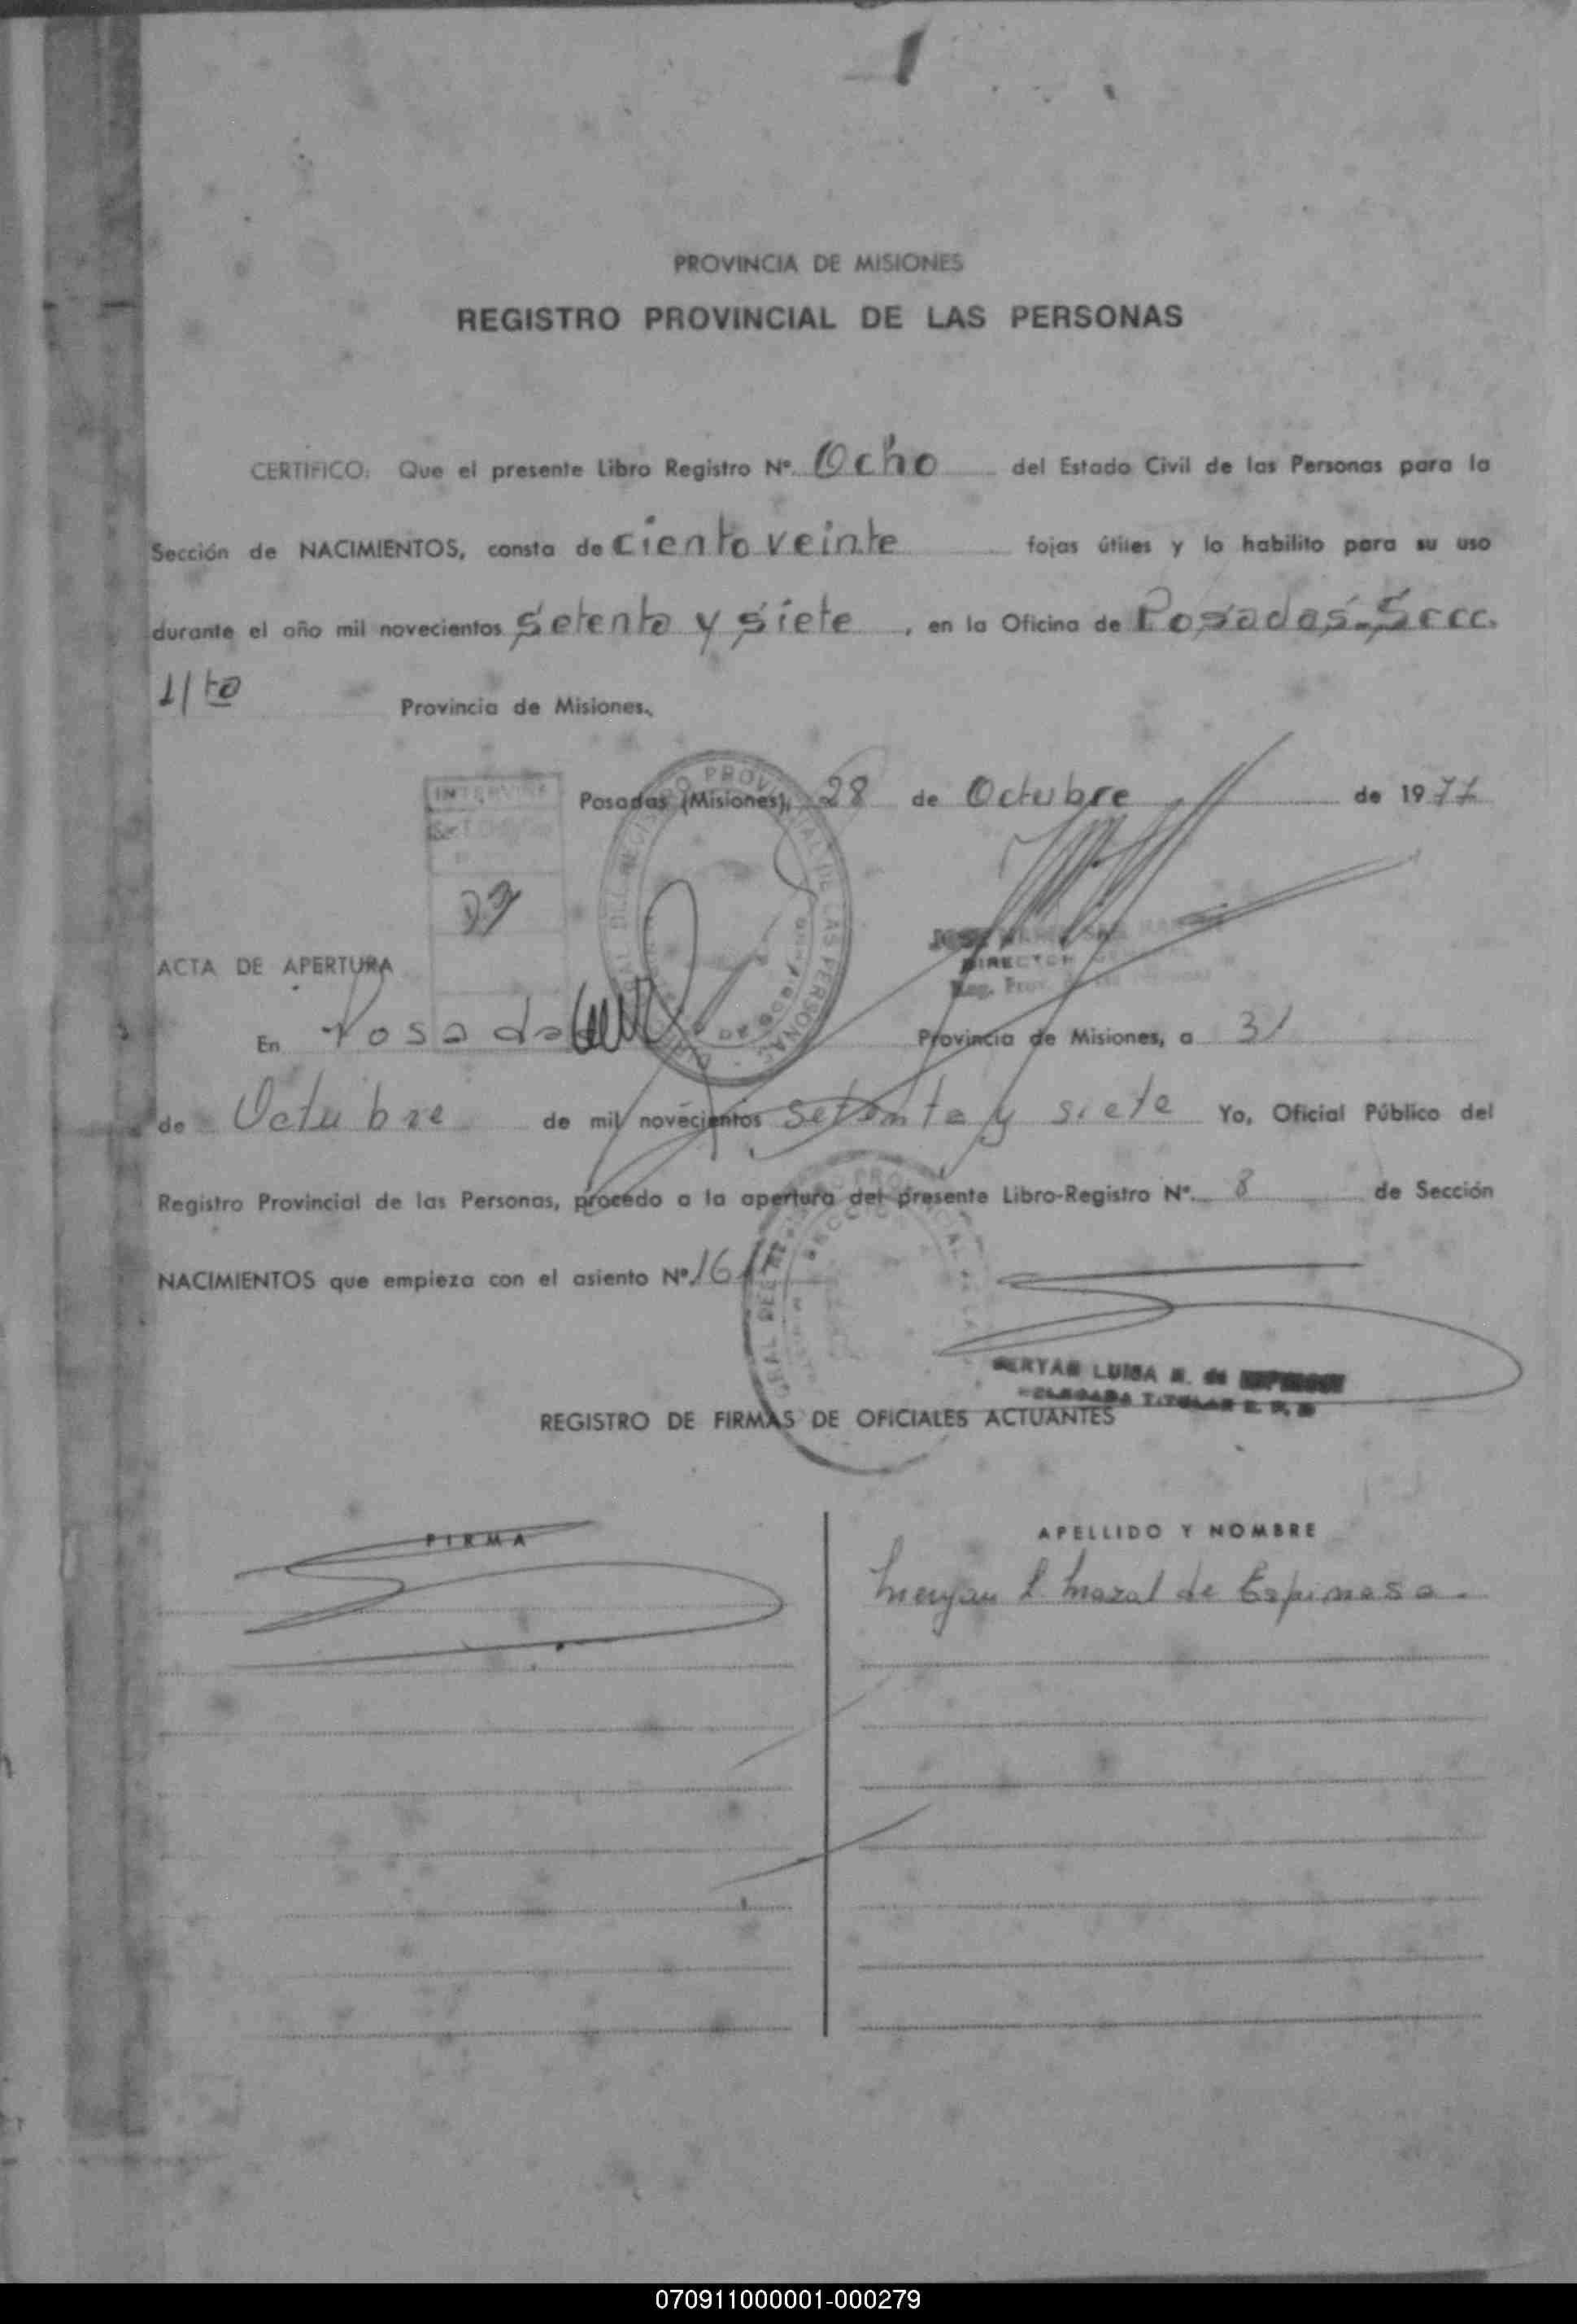 PROVINCIA DE MISIONES
REGISTRO PROVINCIAL DE LAS PERSONAS
CERTIFICO: Que el presente Libro Registro Nº Ocho del Estado Civil de las Personas para la
Sección de NACIMIENTOS, consta de ciento veinte fojas útiles y lo habilito para su uso
durante el año mil novecientos setenta y siete, en la Oficina de Posadas-Secc.
1/ra Provincia de Misiones.
Posadas (Misiones), 28 de Octubre de 1977
ACTA DE APERTURA
DIRECTOR
En Posadas Provincia de Misiones, a 31
de Octubre de mil novecientos setenta y siete Yo, Oficial Público del
Registro Provincial de las Personas, procedo a la apertura del presente Libro-Registro Nº. 8 de Sección
NACIMIENTOS que empieza con el asiento Nº
LUISA M. de
DELEGADA TITULAR
REGISTRO DE FIRMAS DE OFICIALES ACTUANTES
FIRMA APELLIDO Y NOMBRE
Meryan L. Mazal de Espinosa.
070911000001-000279